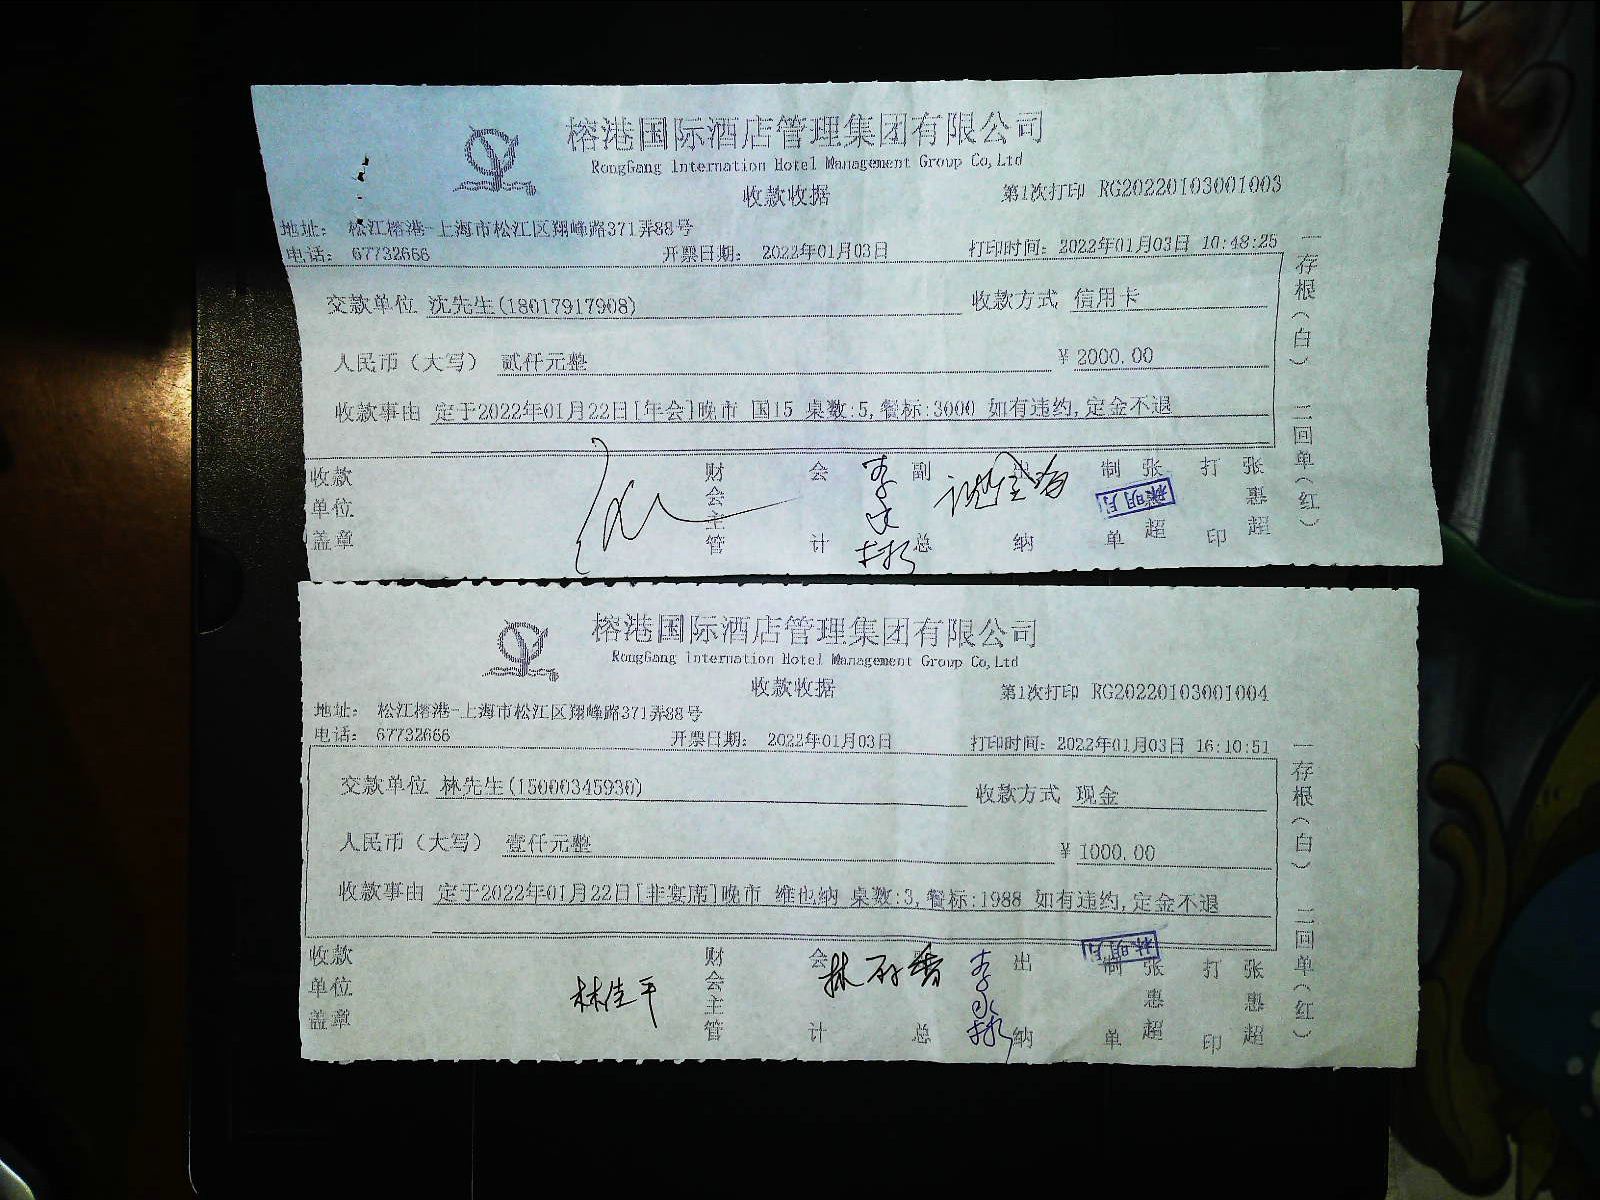 榕港国际酒店管理集团有限公司
RongGang Internation Hotel Management Group Co,Ltd
收款收据 第1次打印 RG20220103001003
地址: 松江榕港-上海市松江区翔峰路371弄88号
电话: 67732666 开票日期: 2022年01月03日 打印时间: 2022年01月03日 10:48:25
交款单位 沈先生(18017917908) 收款方式 信用卡
人民币(大写) 贰仟元整 ¥ 2000.00
收款事由 定于2022年01月22日[年会]晚市 国15 桌数:5,餐标:3000 如有违约,定金不退
一存根(白) 二回单(红)
收款单位盖章 财会主管 会计 副总 出纳 制单 张惠超 打印 张惠超
林明月
榕港国际酒店管理集团有限公司
RongGang Internation Hotel Management Group Co,Ltd
收款收据 第1次打印 RG20220103001004
地址: 松江榕港-上海市松江区翔峰路371弄88号
电话: 67732666 开票日期: 2022年01月03日 打印时间: 2022年01月03日 16:10:51
交款单位 林先生(15000345930) 收款方式 现金
人民币(大写) 壹仟元整 ¥ 1000.00
收款事由 定于2022年01月22日[非宴席]晚市 维也纳 桌数:3,餐标:1988 如有违约,定金不退
一存根(白) 二回单(红)
收款单位盖章 财会主管 会计 总 出纳 制单 张惠超 打印 张惠超
林佳平
林明月